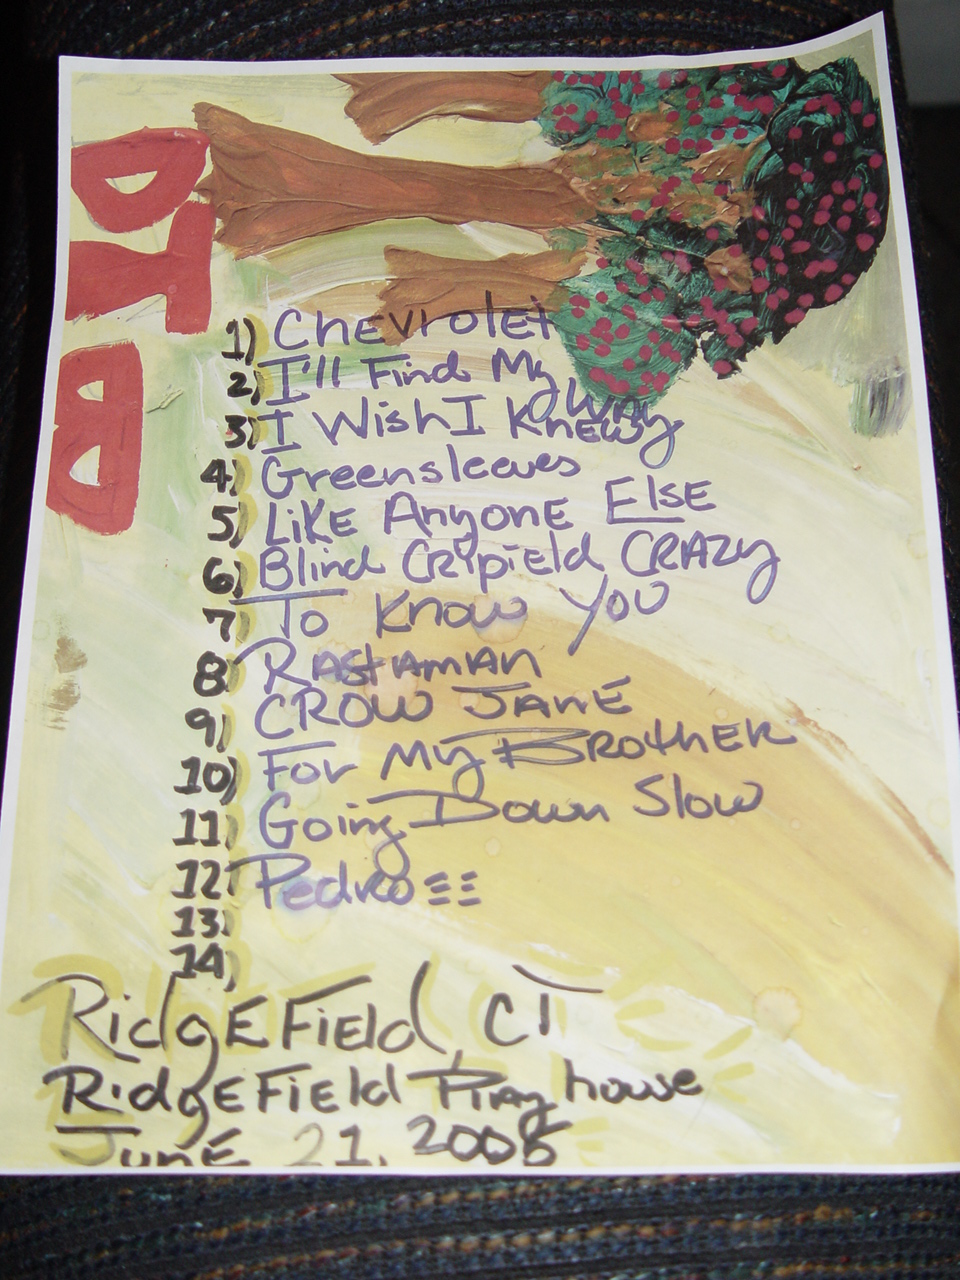 DTB
1) Chevrolet
2) I'll Find My Way
3) I Wish I Knew
4) Greensleeves
5) Like Anyone Else
6) Blind Cripield Crazy
7) To Know You
8) Rastaman
9) Crow Jane
10) For My Brother
11) Going Down Slow
12) Pedro
13)
14)
Ridgefield, CT
Ridgefield Playhouse
June 21, 2005